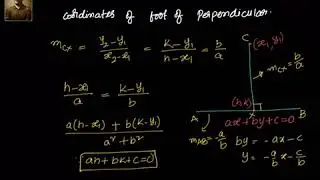 Coordinates of foot of Perpendicular.
m_CX = (y_2-y_1)/(x_2-x_1) = (k-y_1)/(h-x_1) = b/a
(h-x_1)/a = (k-y_1)/b
(a(h-x_1) + b(k-y_1))/(a²+b²)
ah+bk+c=0
C
(x_1,y_1)
m_CX = b/a
(h,k)
A
X
B
ax+by+c=0
m_AB = -a/b
by = -ax-c
y = -a/b x - c/b